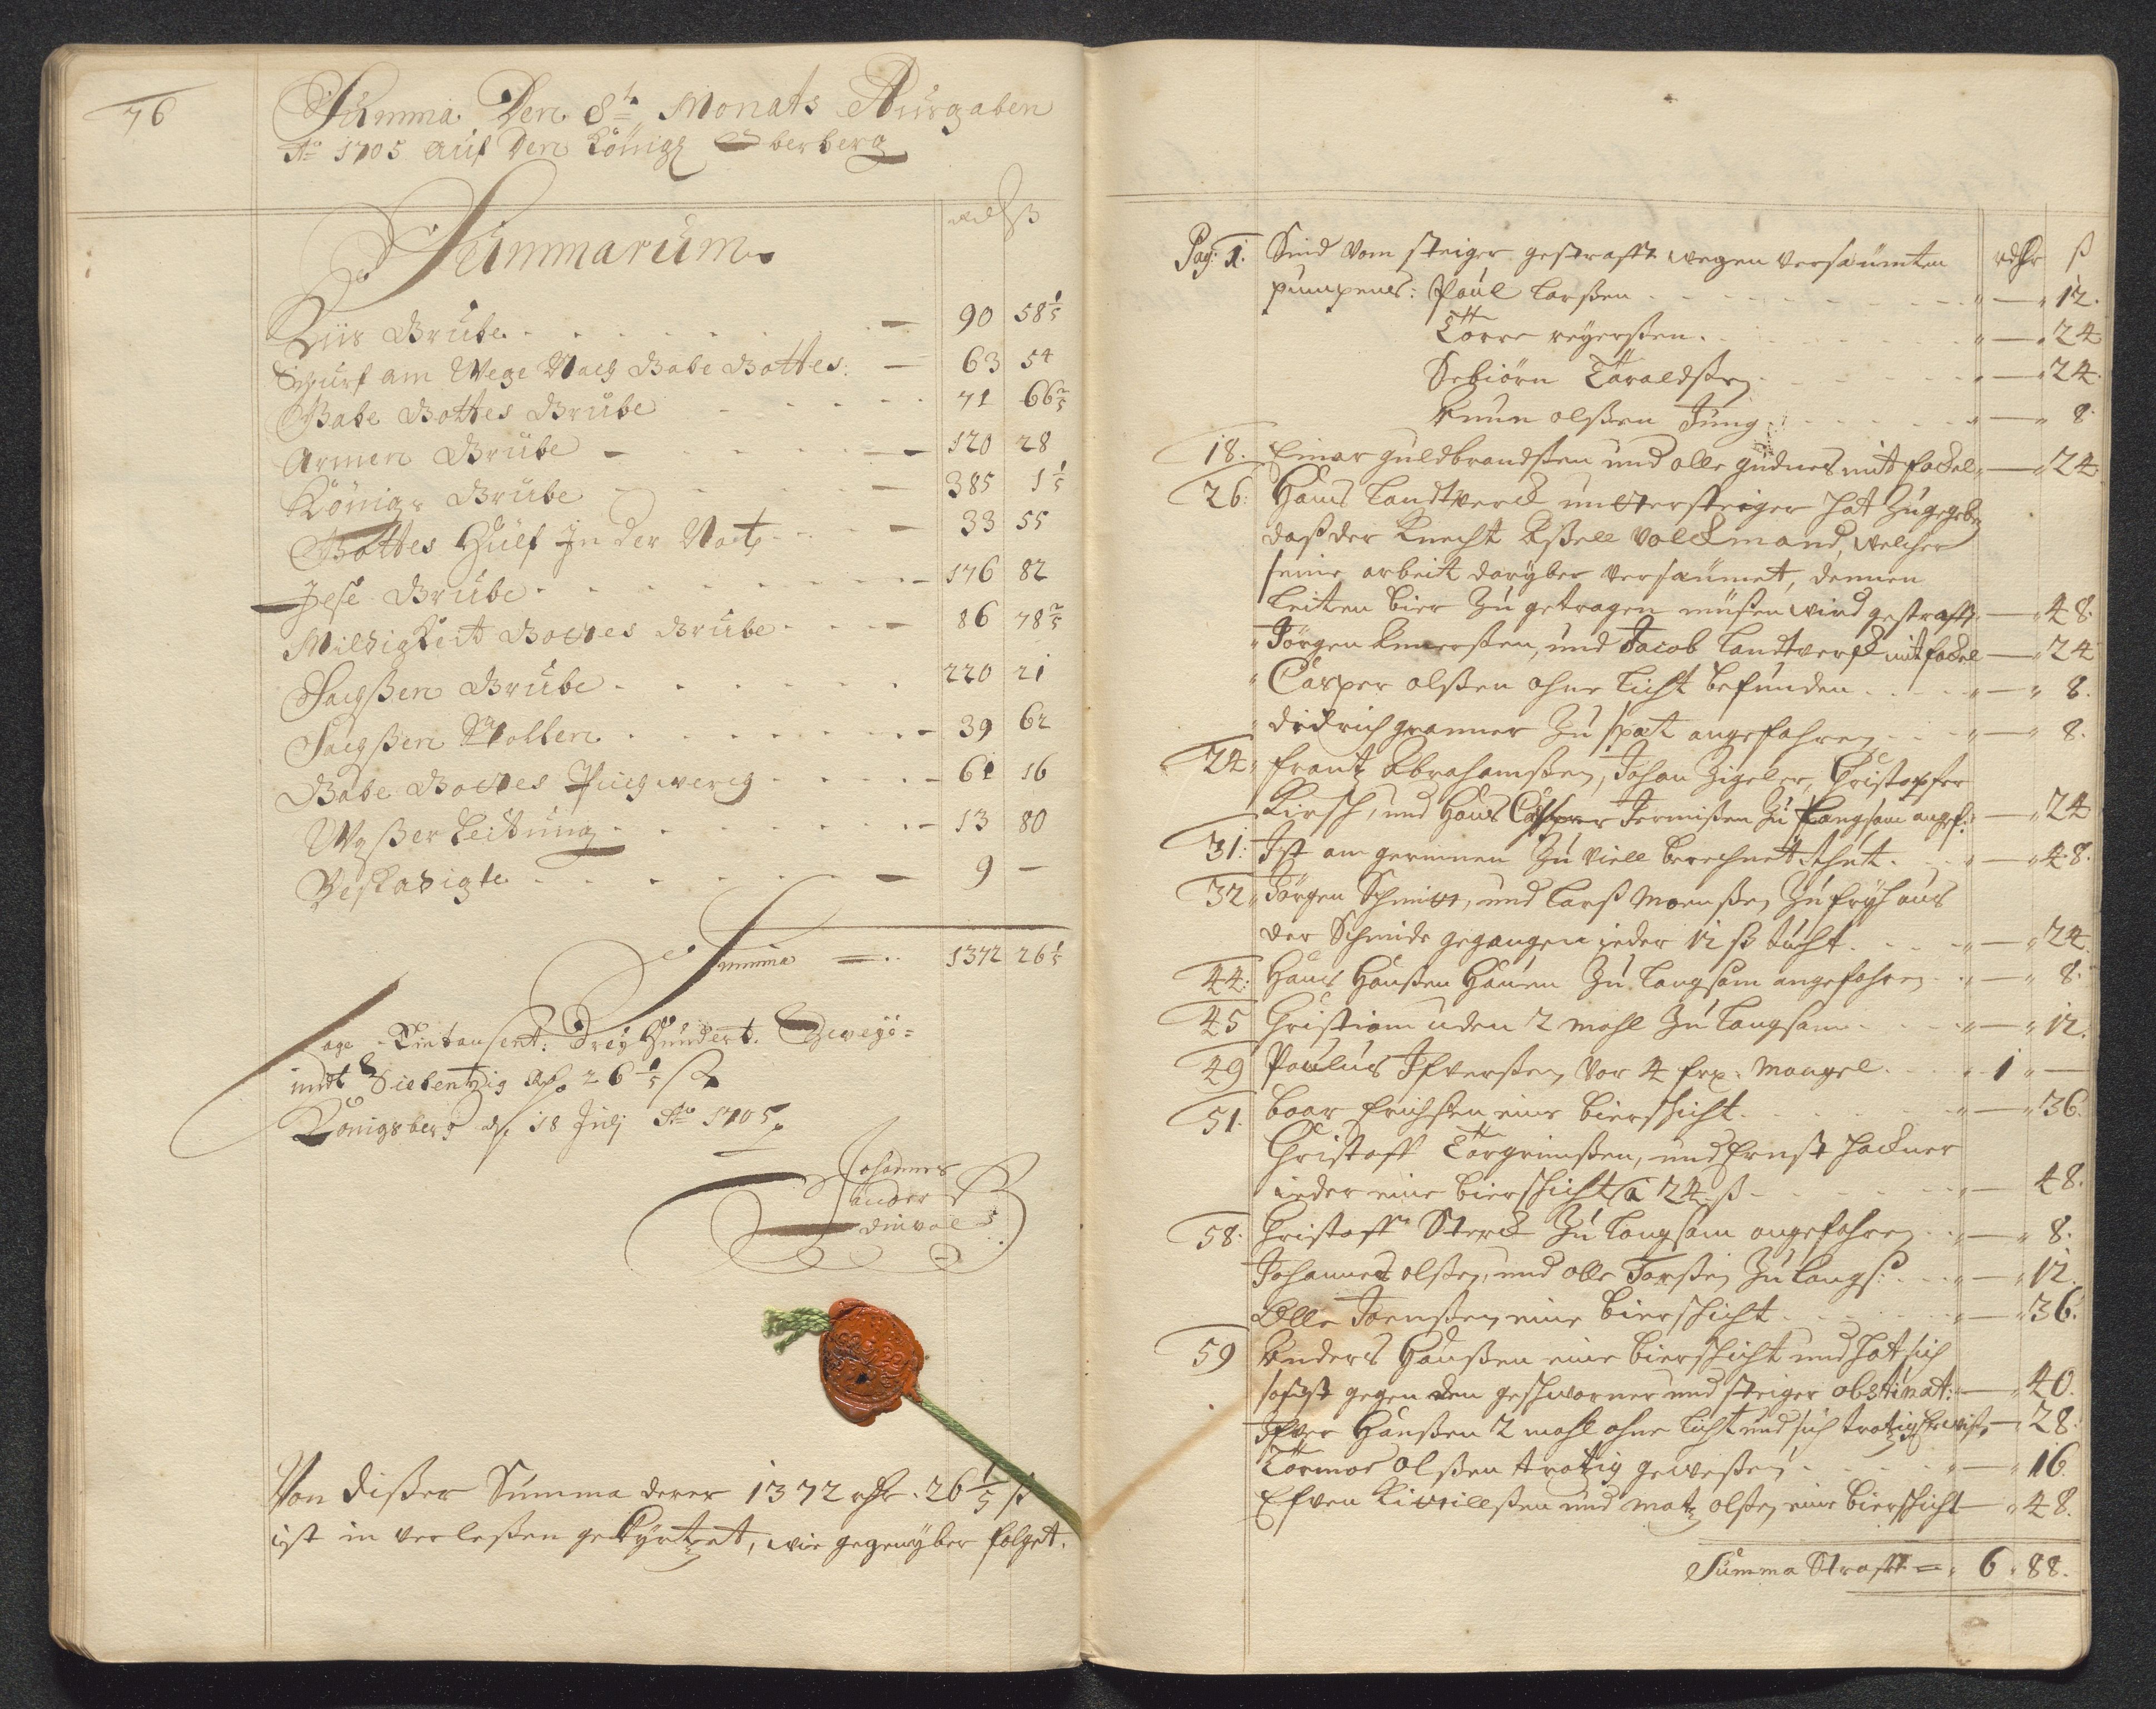 76
Summa Den 8t Monats Ausgaben
Ao 1705 auf Den Königs Oberberg
rdlß
Summarum
Grube 90 58 1/5
Schurf am Wege Nach Gabe Gottes: 63 54
Gabe Gottes Grube 71 66 2/5
Armen Grube 120 28
Königs Grube 385 1 1/5
Gottes Hülf In der Noth 33 55
Grube 176 82
Mildigkeit Gottes Grube 86 78 2/5
Sachßen Grube 220 21
Sachßen Stollen 39 62
Gabe Gottes Puchwerch 61 16
Waßer Leitung 13 80
Beschadigte 9 —
Summa 1372 26 1/5
Sage Eintausent: Dreÿ Hundert. Zweÿ=
undt Siebentzig Rdr. 26 1/5 ß
Königsberg d. 18 Julj Ao 1705
Johannes
Von dißer Summa derer 1372 rdr. 26 1/5 ß
ist in verleßen gekürtzet, wie gegenüber folget.
Pag: 1. Sind vom steiger gestrafft wegen versäumten rdlr ß
pumpens: Poül Larßen " — " 12.
Torre reyerßen. " — " 24
Sebiörn Taraldßen " — " 24.
Knun olßen Jung " — " 8.
18. Einar guldbrandßen und olle gudnes mit fackel — " 24
26: Hans Landtwerck untersteiger hat zugegeben
daß der Knecht Aßell Volckmand, welcher
seine arbeit darÿber versäumet, dennen
Leüten bier zu getragen müßen wird gestrafft — " 48.
" Jörgen Knuerßen, und Jacob Landtverck mit fackel — " 24
" Casper olßen ohne licht befunden " — " 8.
" didrich granner zu spat angefahren " — " 8.
24. frantz Abrahamßen, Johan Zigeler, Christopfer
Kirsch, und Hans Jermißen zu langsam angef: — " 24
31: Ist am gerinnen zu viell berechnet " — " 48.
32 " Jörgen Schmitt, und Larß Moenßen zu früh aus
der Schmide gegangen ieder 12 ß " — " 24.
44: Hans Hanßen zu langsam angefahren " — " 8.
45 Christian uden 2 mahl zu langsam " — " 12.
49 Paulus Ifverßen vor 4 Mangel " 1 " —
51. boar Erichßen eine bierschicht " — " 36.
Christoff Torgrimßen, und Ernst Hackner
ieder eine bierschicht a 24 ß " — 48.
58: Christoff Sterck zu langsam angefahren " — " 8.
Johannes olßen, und olle Torßen zu langs: " — " 12.
Olle Joenßen eine bierschicht " — " 36.
59 Anders Hanßen eine bierschicht und hat sich
sonst gegen den geschworner und steiger obstinat: — " 40.
Ifver Hanßen 2 mahl ohne licht und sich trotzig — " 28.
Tormoe olßen trotzig geweßen " — " 16.
Efven Kittillßen und Matz olßen eine bierschicht — " 48.
Summa Strafft = " 6 " 88.